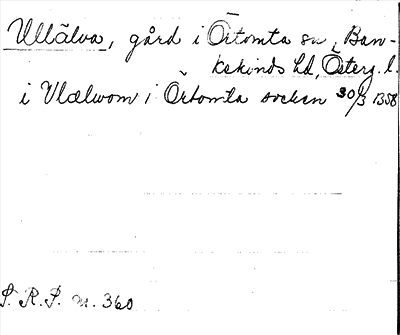 Ullälva, gård i Örtomta sn, Ban-
kekinds hd, Österg. l.
i Vlælwom i Örtomta socken 30/3 1358
S. R. P. n. 360